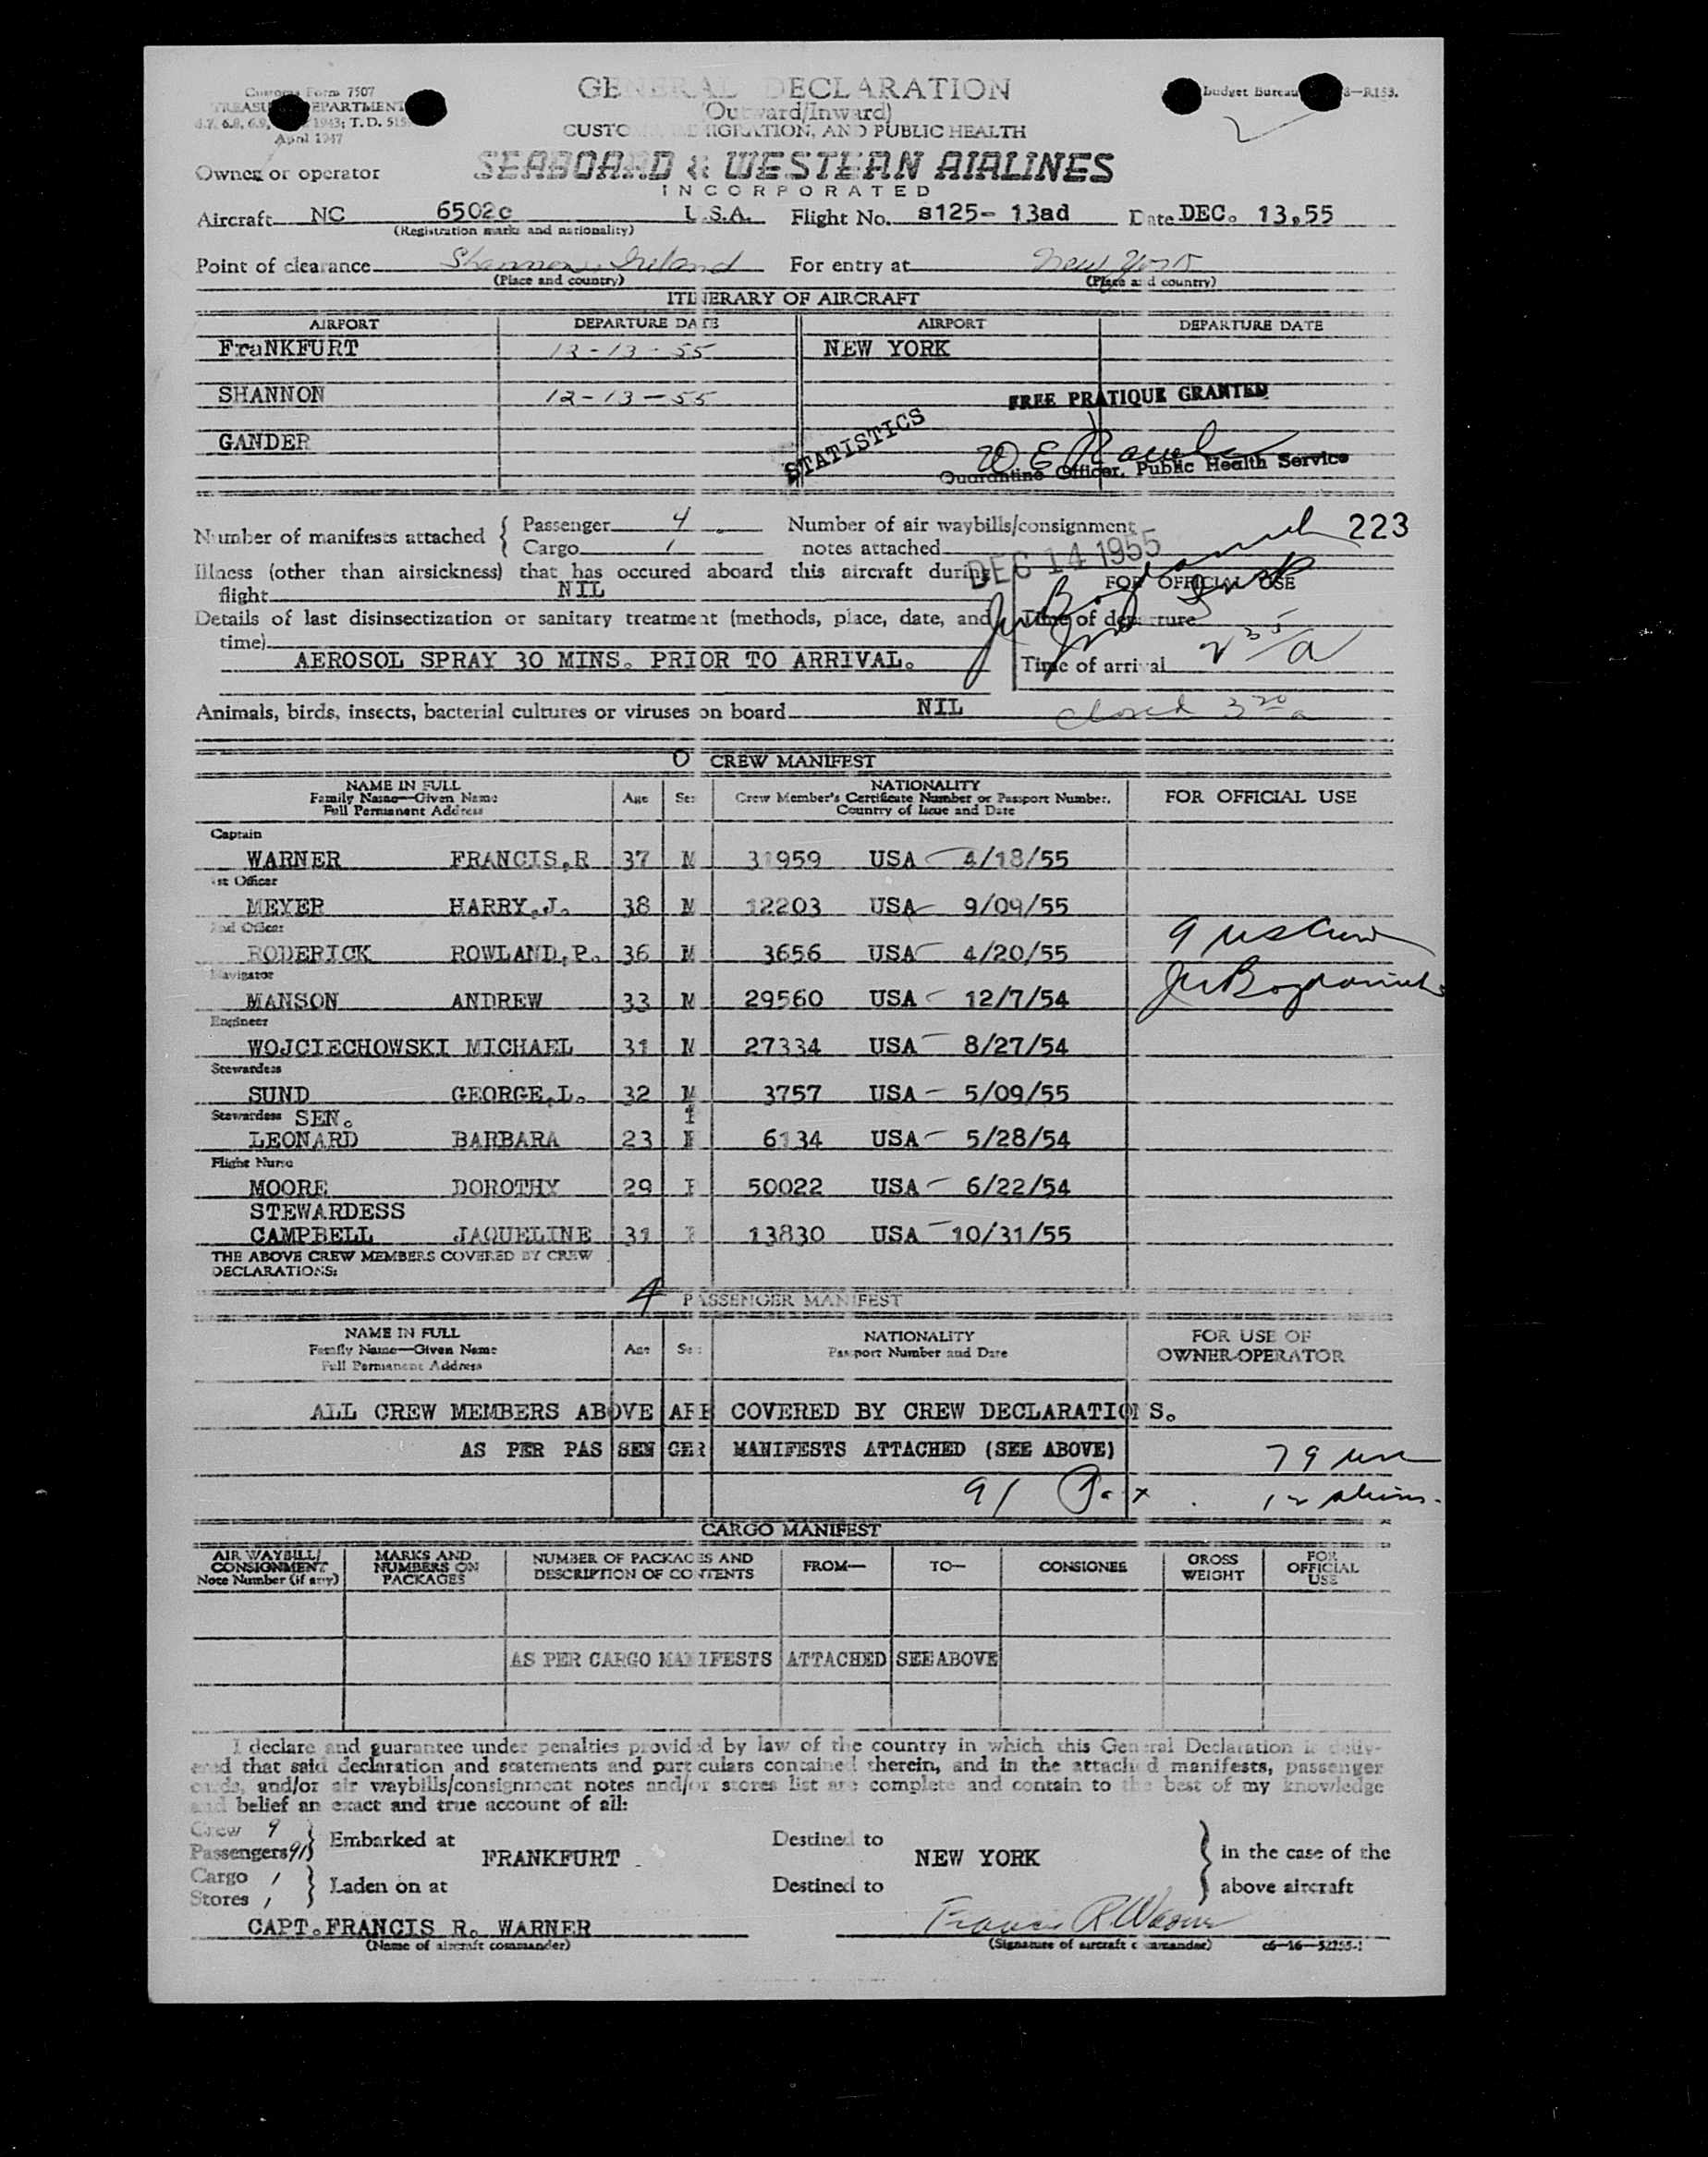 Customs Form 7507
GENERAL DECLARATION
(Outward/Inward)
CUSTOMS, IMMIGRATION, AND PUBLIC HEALTH
Budget Bureau
TREASURY DEPARTMENT
1943; T.D. 515
April 1947
Owner or operator
SEABOARD & WESTERN AIRLINES
INCORPORATED
Aircraft NC 6502c U.S.A. Flight No. s125- 13ad Date DEC. 13,55
(Registration marks and nationality)
Point of clearance Shannon, Ireland For entry at New York
(Place and country) (Place and country)
ITINERARY OF AIRCRAFT
AIRPORT DEPARTURE DATE AIRPORT DEPARTURE DATE
FraNKFURT 12-13-55 NEW YORK
SHANNON 12-13-55 FREE PRATIQUE GRANTED
GANDER STATISTICS
Quarantine Officer, Public Health Service
Number of manifests attached { Passenger 4 Number of air waybills/consignment 223
Cargo 1 notes attached
DEC 14 1955
Illness (other than airsickness) that has occured aboard this aircraft during
flight NIL
FOR OFFICIAL USE
Details of last disinsectization or sanitary treatment (methods, place, date, and
time)
Time of departure
AEROSOL SPRAY 30 MINS. PRIOR TO ARRIVAL.
Time of arrival 2 35 a
Animals, birds, insects, bacterial cultures or viruses on board NIL closed 3 20 a
CREW MANIFEST
NAME IN FULL
Family Name—Given Name
Full Permanent Address
Age Sex
NATIONALITY
Crew Member's Certificate Number or Passport Number,
Country of Issue and Date
FOR OFFICIAL USE
Captain
WARNER FRANCIS,R 37 M 31959 USA 4/18/55
1st Officer
MEYER HARRY,J. 38 M 12203 USA 9/09/55
2nd Officer
RODERICK ROWLAND,P. 36 M 3656 USA 4/20/55
9 US Crew
Navigator
MANSON ANDREW 33 M 29560 USA 12/7/54
Engineer
WOJCIECHOWSKI MICHAEL 31 M 27334 USA 8/27/54
Stewardess
SUND GEORGE,L. 32 M 3757 USA 5/09/55
Stewardess SEN.
LEONARD BARBARA 23 6134 USA 5/28/54
Flight Nurse
MOORE DOROTHY 29 F 50022 USA 6/22/54
STEWARDESS
CAMPBELL JAQUELINE 31 F 13830 USA 10/31/55
THE ABOVE CREW MEMBERS COVERED BY CREW
DECLARATIONS:
4 PASSENGER MANIFEST
NAME IN FULL
Family Name—Given Name
Full Permanent Address
Age Sex
NATIONALITY
Passport Number and Date
FOR USE OF
OWNER-OPERATOR
ALL CREW MEMBERS ABOVE ARE COVERED BY CREW DECLARATIONS.
AS PER PAS SEN GER MANIFESTS ATTACHED (SEE ABOVE)
79
91 Pax. 12 aliens.
CARGO MANIFEST
AIR WAYBILL/
CONSIGNMENT
Note Number (if any)
MARKS AND
NUMBERS ON
PACKAGES
NUMBER OF PACKAGES AND
DESCRIPTION OF CONTENTS
FROM—
TO—
CONSIGNEE
GROSS
WEIGHT
FOR
OFFICIAL
USE
AS PER CARGO MANIFESTS ATTACHED SEE ABOVE
I declare and guarantee under penalties provided by law of the country in which this General Declaration is deliv-
ered that said declaration and statements and particulars contained therein, and in the attached manifests, passenger
cards, and/or air waybills/consignment notes and/or stores list are complete and contain to the best of my knowledge
and belief an exact and true account of all:
Crew 9
Passengers 91 } Embarked at FRANKFURT Destined to NEW YORK } in the case of the
Cargo 1
Stores 1 } Laden on at Destined to above aircraft
CAPT. FRANCIS R. WARNER Francis R. Warner
(Name of aircraft commander) (Signature of aircraft commander) c6-16-52255-1